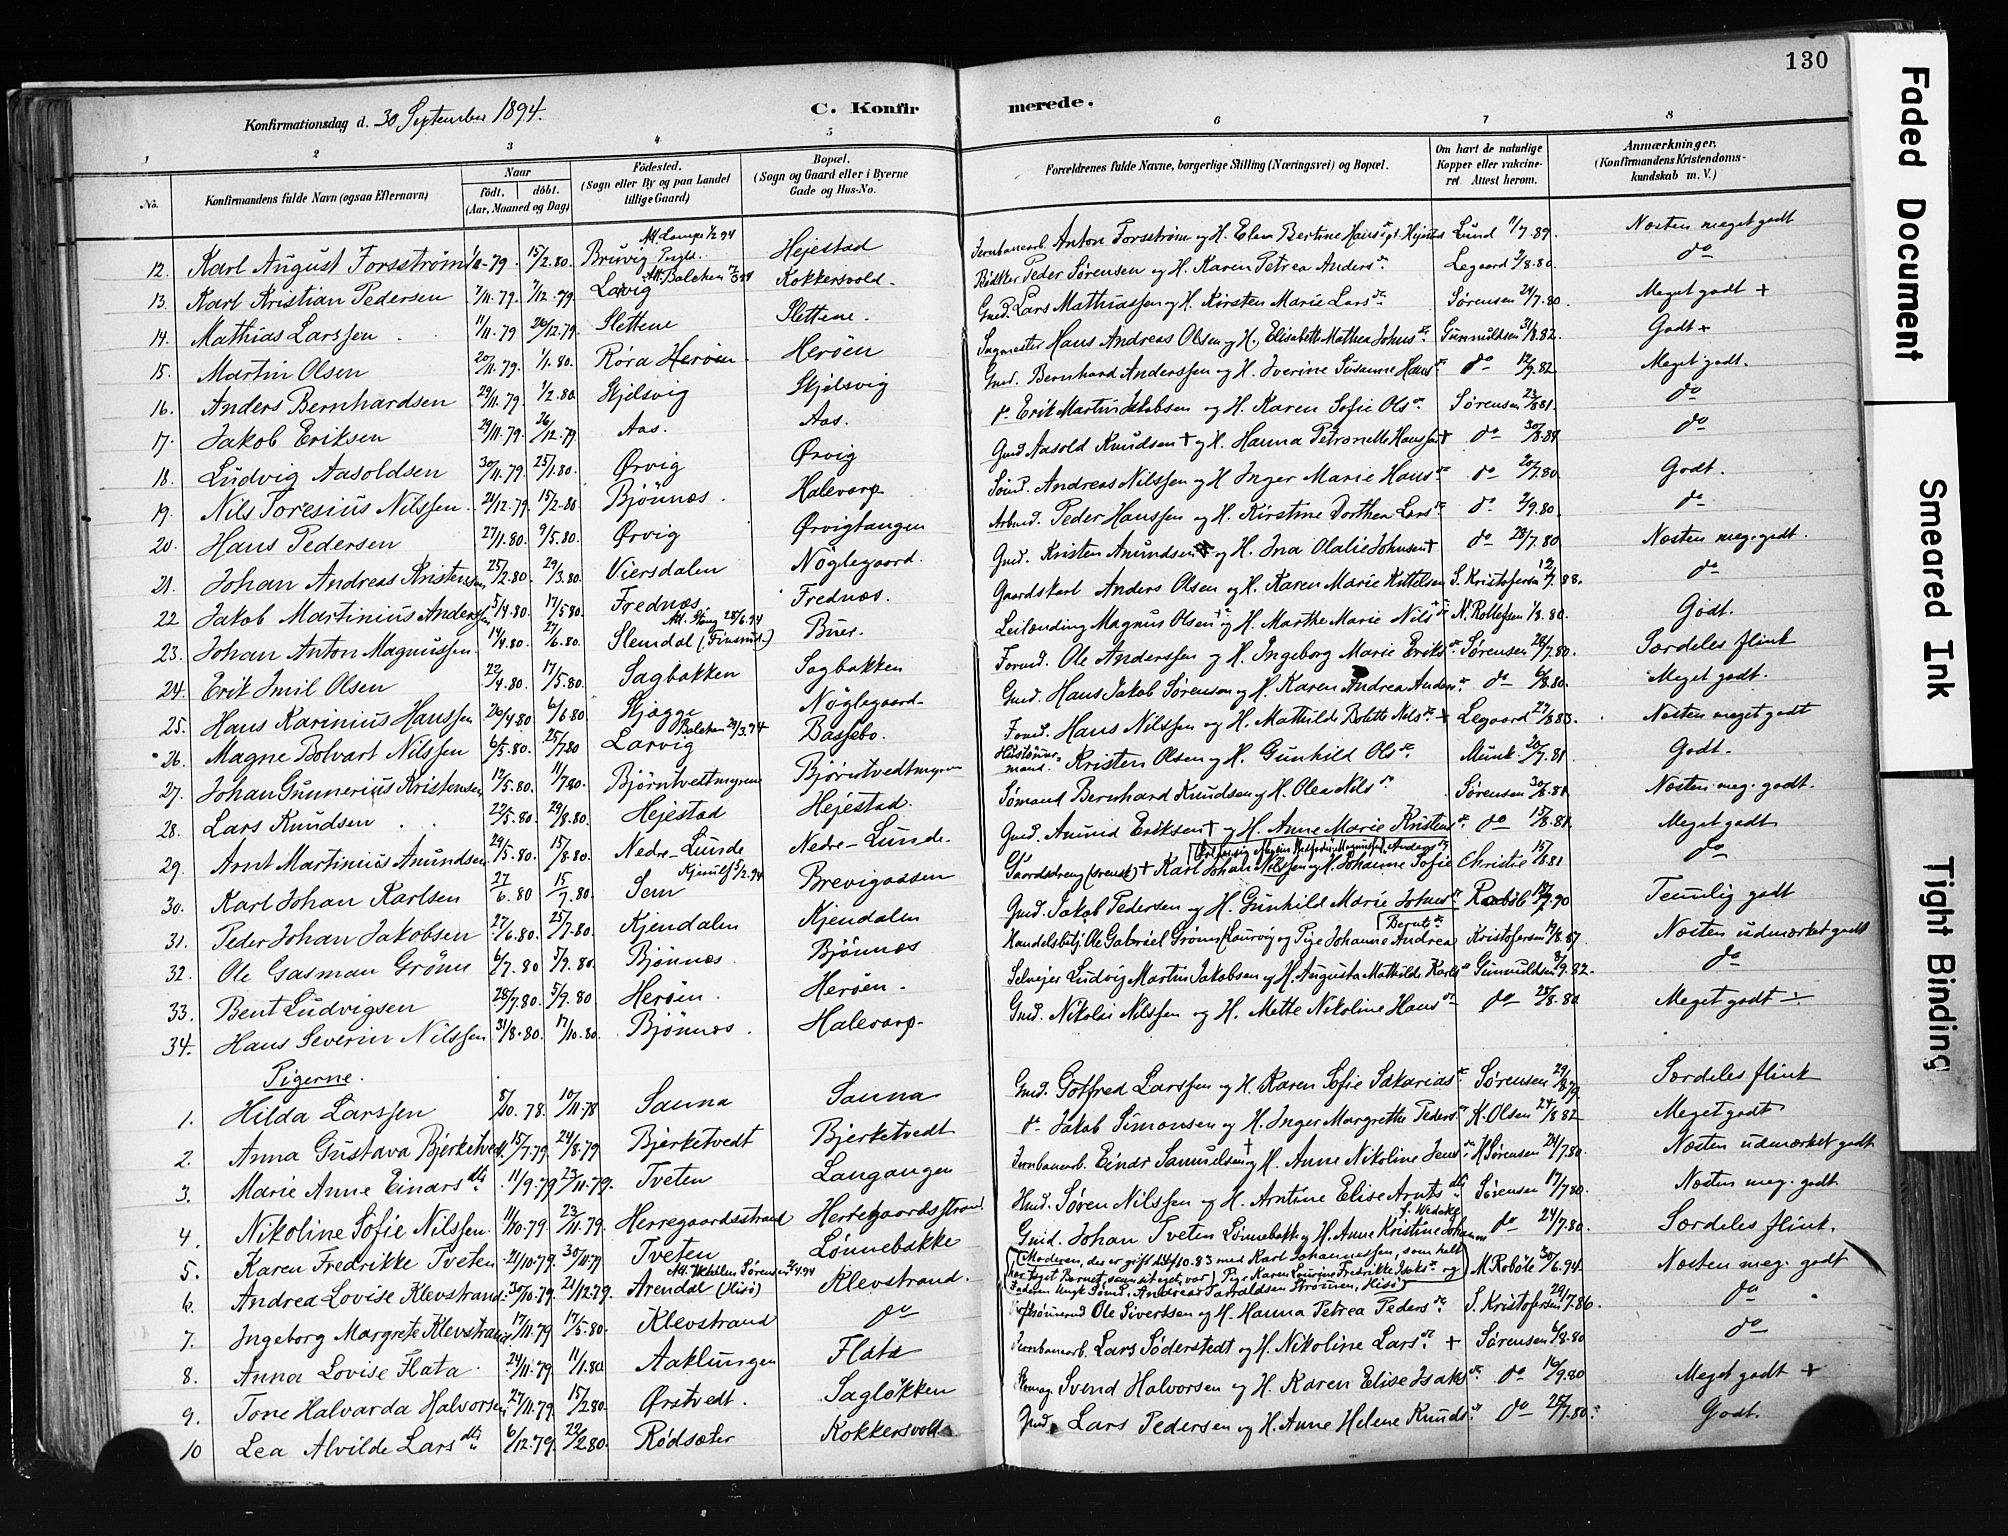 130
Konfirmationsdag d. 30 September 1894.
C. Konfirmerede.
1 2 3 4 5 6 7 8
No. Konfirmandens fulde Navn (ogsaa Efternavn) Naar født. døbt. (Aar, Maaned og Dag) Fødested. (Sogn eller By og paa Landet tillige Gaard) Bopæl. (Sogn og Gaard eller i Byerne Gade og Hus-No. Forældrenes fulde Navne, borgerlige Stilling (Næringsvei) og Bopæl. Om havt de naturlige Kopper eller vakcineret. Attest herom. Anmærkninger. (Konfirmandens Kristendomskundskab m. V.)
12. Karl August Forsström 79. 15/2.80. Hejestad Jernbanearb. Anton Forsström og H. Elen Bertine Lund 7.89. Næsten meget godt
13. Karl Kristian Pedersen 7/11.79. 7/12.79. Larvig Kokkersvold. Bødker Peder Sørensen og H. Karen Petrea Anders dr Legaard 8.80. do
14. Mathias Larssen 11/11.79 26/12.79. Slettene Slettene. Gmd. Lars Mathiassen og H. Kirsten Marie Lars dr Sørensen 24/7.80. Meget godt +
15. Martin Olsen 20/11.79. 1/1.80. Røra Herøen Herøen Hans Andreas Olsen og H. Elisabeth Mathea Johns dr Gunnuldsen 31/8.82. Godt +
16. Anders Bernhardsen 29/11.79. 1/2.80. Skjelsvig Skjelsvig Gmd. Bernhard Anderssen og H. Iverine Susanne Hans dr do 12/9.82 Meget godt.
17. Jakob Eriksen 29/11.79. 26/12.79 Aas. Aas. do Erik Martin Jakobsen og H. Karen Sofie Ols dr Sørensen 23/8.81. do
18. Ludvig Aasoldsen 30/11.79. 25/1.80. Ørvig Ørvig Gmd Aasold Knudsen + og H. Hanna Petronelle Hanssen + do 30/8.84 do
19. Nils Toresius Nilssen 21/12.79. 15/2.80 Bjönnæs. Halevarp Sømd. Andreas Nilssen og H. Inger Marie Hans dr do 20/7.80. Godt.
20. Hans Pedersen 27/1.80. 9/5.80. Ørvig Ørvigtangen Arbmd. Peder Hanssen og H. Kirstine Dorthea Lars dr do 2/9.80. do
21. Johan Andreas Kristensen 25/2.80. 29/3.80. Viersdalen Nöglegaard. Gmd. Kristen Amundsen og H. Ina Olalie Johnsen + do 28/7.80 Næsten meg. godt.
22 Jakob Martinius Anderssen 5/4.80. 17/5.80. Frednæs Frednæs. Gaardskarl Anders Olsen og H. Karen Marie Kittelsen S. Kristofersen 12/7.88. do
23. Johan Anton Magnussen 14/4.80. 27/6.80. Slemdal Buer. Leilænding Magnus Olsen og H. Marthe Marie Nils dr N. Rollefsen 1/8.80. Godt.
24. Erik Emil Olsen 22/4.80. 17/5.80. Sagbakken Sagbakken Formd. Ole Anderssen og H. Ingeborg Marie Eriks dr Sørensen 28/7.80. Særdeles flink
25. Hans Karinius Hanssen 26/4.80 6/6.80 Skjøgge Nöglegaard. Gmd. Hans Jakob Sørensen og H. Karen Andrea Anders dr do 6/8.80. Meget godt.
26. Magne Bolvart Nilssen 6/5.80. 25/7.80 Larvig Bassebo. Formd. Hans Nilssen og H. Mathilde Nils dr + Legaard 27/8.83. Næsten meget godt
27. Johan Gunnerius Kristensen 12/5.80. 11/7.80. Bjørntvedtmyrene Bjørntvedtmyren Kristen Olsen og H. Gunhild Ols dr Munk 20/7.81 Godt.
28. Lars Knudsen 22/5.80. 29/8.80. Hejestad Hejestad. Sømand Bernhard Knudsen og H. Olea Nils dr Sørensen 30/8.81 Næsten meg. godt.
29. Arnt Martinius Amundsen 24/5.80. 15/8.80. Nedre-Lunde Nedre-Lunde. Gmd. Amund Eriksen + og H. Anne Marie Kristens dr do 15/8.81. Meget godt
30. Karl Johan Karlsen 27/6.80 15/7.80. Sem Brevigaasen Gaardsdreng (svensk) + Karl Johan Nilssen og H. Johanne Sofie Christie 15/8.81 do
31. Peder Johan Jakobsen 27/6.80. 25/7.80. Kjendalen Kjendalen Gmd. Jakob Pedersen og H. Gunhild Marie Johns dr Robøle Temlig godt
32. Ole Gasman Grönn 6/7.80 5/9.80. Bjönnæs Bjönnæs Handelsbetj. Ole Gabriel Grönn (Laurvig og Pige Johanne Andrea Bernts dr Kristofersen 8.87. Næsten udmærket godt
33. Bent Ludvigsen 28/7.80. 5/9.80 Herøen. Herøen. Selvejer Ludvig Martin Jakobsen og H. Augusta Mathilde Karls dr Gunnuldsen 9.82. do
34. Hans Severin Nilssen 31/8.80. 17/10.80. Bjönnæs. Halevarp. Gmd. Nikolai Nilssen og H. Mette Nikoline Hans dr do 25/8.80 Meget godt ÷
Pigerne.
1. Hilda Larssen 8/10.78. 10/11.78 Sauna Sauna Gmd. Gotfred Larssen og H. Karen Sofie Sakarias dr Sørensen 29/8.79. Særdeles flink
2. Anna Gustava Bjerketvedt 15/7.79. 24/8.79 Bjerketvedt Bjerketvedt do Jakob Simonsen og H. Inger Margrethe Peders dr K. Olsen 24/8.82 Meget godt
3. Marie Anne Einars dtr 11/9.79 23/11.79. Tveten Langangen Jernbanearb. Einar Samuelsen + og H. Anne Nikoline Jens dr H Sørensen 24/7.80. Næsten udmærket godt
4. Nikoline Sofie Nilssen 11/10.79. 23/11.79. Herregaardsstrand Herregaardsstrand Søren Nilssen og H. Arntine Elise Arnts dtr Sørensen 17/7.80. Næsten meg. godt
5. Karen Fredrikke Tveten 21/10.79. 30/11.79 Tveten Lønnebakke Gmd. Johan Tveten Lønnebakke og H. Anne Kristine Johannes do 24/7.80. Særdeles flink.
6. Andrea Lovise Klevstrand 30/10.79. 21/12.79. Arendal (Hisø) Klevstrand. (Moderen, der er gift 10.83 med Karl Johannessen, som helt har taget Barnet som sit eget, var) Pige Karen Lovise Fredrikke Isaks dr og M Robøle 30/6.94. Næsten meg. godt
7. Ingeborg Margrete Klevstrand 17/11.79 17/5.80. Klevstrand do Ole Sivertsen og H. Hanna Petrea Peders dr S. Kristofersen 29/7.86. do
8. Anna Lovise Flata 24/11.79 11/1.80. Aaklungen Flata Jernbanearb. Lars Söderstedt og H. Nikoline Lars dr + Sørensen 6/8.80 do
9. Tone Halvarda Halvorsen 27/11.79 15/2.80. Ørstvedt. Sagløkken Svend Halvorsen og H. Karen Elise Isaks dr do 16/9.80 Meget godt +
10 Lea Alvilde Lars dtr 6/12.79. 22/2.80. Rødsæter Kokkersvold Gmd. Lars Pedersen og H. Anne Helene Knuds dr do 25/7.80. Godt.
Faded Document
Smeared Ink
Tight Binding